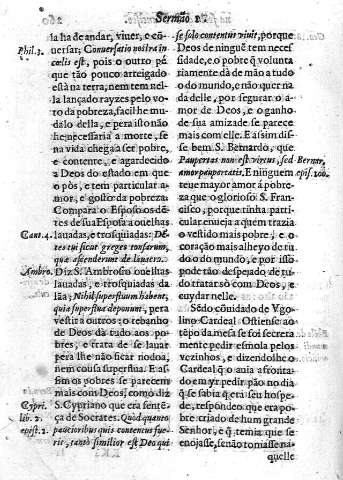 Sermão 2.
la ha de andar, viuer, e cõ
uersar; Conuersatio nostra in
cœlis est, pois o outro pé
que tão pouco arreigado
está na terra, nem tem nel-
la lançado rayzes pelo voto
da pobreza, facil he mu-
dalo della, e pera isto não
he necessaria a morte, se
na vida chega a ser pobre,
e contente, e agardecido
a Deos do estado em que
o pòs, e tem particular a-
mor, e gosto da pobreza:
Compara o Esposo os dẽ-
tes de sua Esposa a ouelhas
lauadas, e trosquiadas: Dẽ-
tes tui sicut greges tonsarum,
quæ ascenderunt de lauacro.
Diz S. Ambrosio ouelhas
lauadas, e trosquiadas da
lãa; Nihil superfluum habent,
quia superflua deponunt, pera
vestir a outros o rebanho
de Deos dà tudo aos po-
bres, e trata de se lauar
pera lhe não ficar nodoa,
nem cousa superflua. E as-
sim os pobres se parecem
mais com Deos, como diz
S. Cypriano que era senté-
ça de Socrates. Quod quanto
paucioribus quis contentus fue
rit, tanto similior est Deo qui
Phil. 3.
Cant. 4.
Ambro.
Cypri.
lib. 2.
epist. 2.
se solo contentus viuit, porque
Deos de ninguẽ tem neces
sidade, e o pobre q̃ volunta
riamente dá de mão a tudo
o do mundo, e não quer na
da delle, por segurar o a-
mor de Deos, e o ganho
de sua amizade se parece
mais com elle. E assim dis-
se bem S. Bernardo, que
Paupertas non est virtus, sed
amor paupertatis. E ninguem
teue mayor amor á pobre-
za que o glorioso S. Fran-
cisco, porque tinha parti-
cular enueja a quem trazia
o vestido mais pobre, e o
coração mais alheyo de tu-
do o do mundo, e por isso
pode tão despejado de tu-
do tratar sò com Deos, e
cuydar nelle.
Sẽdo cõuidado de Vgo-
lino Cardeal Ostiense ao
tẽpo da mesa se foi secreta
mente pedir esmola pelos
vezinhos, e dizendolhe o
Cardeal q̃ o auia afronta-
do em yr pedir pão no dia
q̃ se sabia q̃ era seu hospe-
de, respondeo que era po
bre criado de hum grande
Senhor, e q̃ temia que se
enojasse, se não tomasse na
quelle
Bernar.
epis. 100.